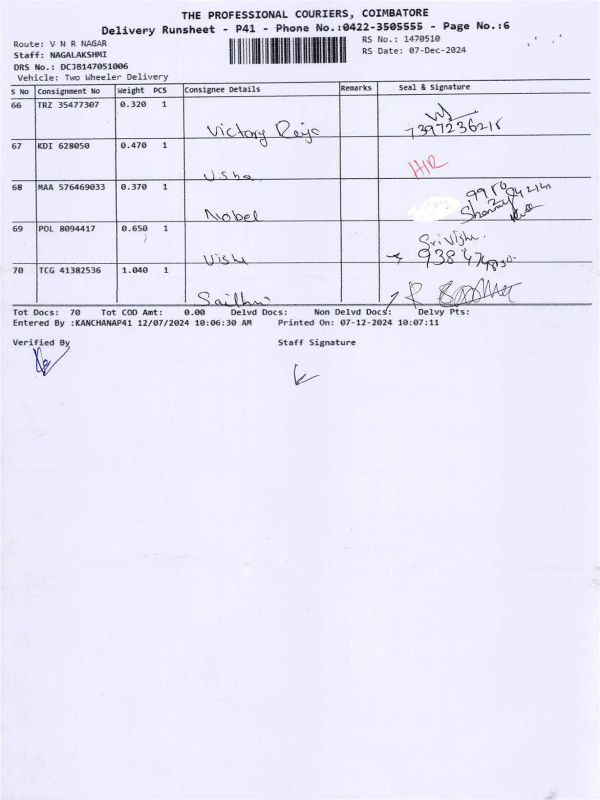 THE PROFESSIONAL COURIERS, COIMBATORE
Delivery Runsheet - P41 - Phone No.:0422-3505555 - Page No.:6
Route: V N R NAGAR RS No.: 1470510
Staff: NAGALAKSHMI RS Date: 07-Dec-2024
DRS No.: DCJB147051006
Vehicle: Two Wheeler Delivery
S No Consignment No Weight PCS Consignee Details Remarks Seal & Signature
66 TRZ 35477307 0.320 1
Victory 7397236215
67 KDI 628050 0.470 1
Usha
68 MAA 576469033 0.370 1
Nobel
69 POL 8094417 0.650 1
Vishu Srivishu.
70 TCG 41382536 1.040 1
Tot Docs: 70 Tot COD Amt: 0.00 Delvd Docs: Non Delvd Docs: Delvy Pts:
Entered By :KANCHANAP41 12/07/2024 10:06:30 AM Printed On: 07-12-2024 10:07:11
Verified By Staff Signature